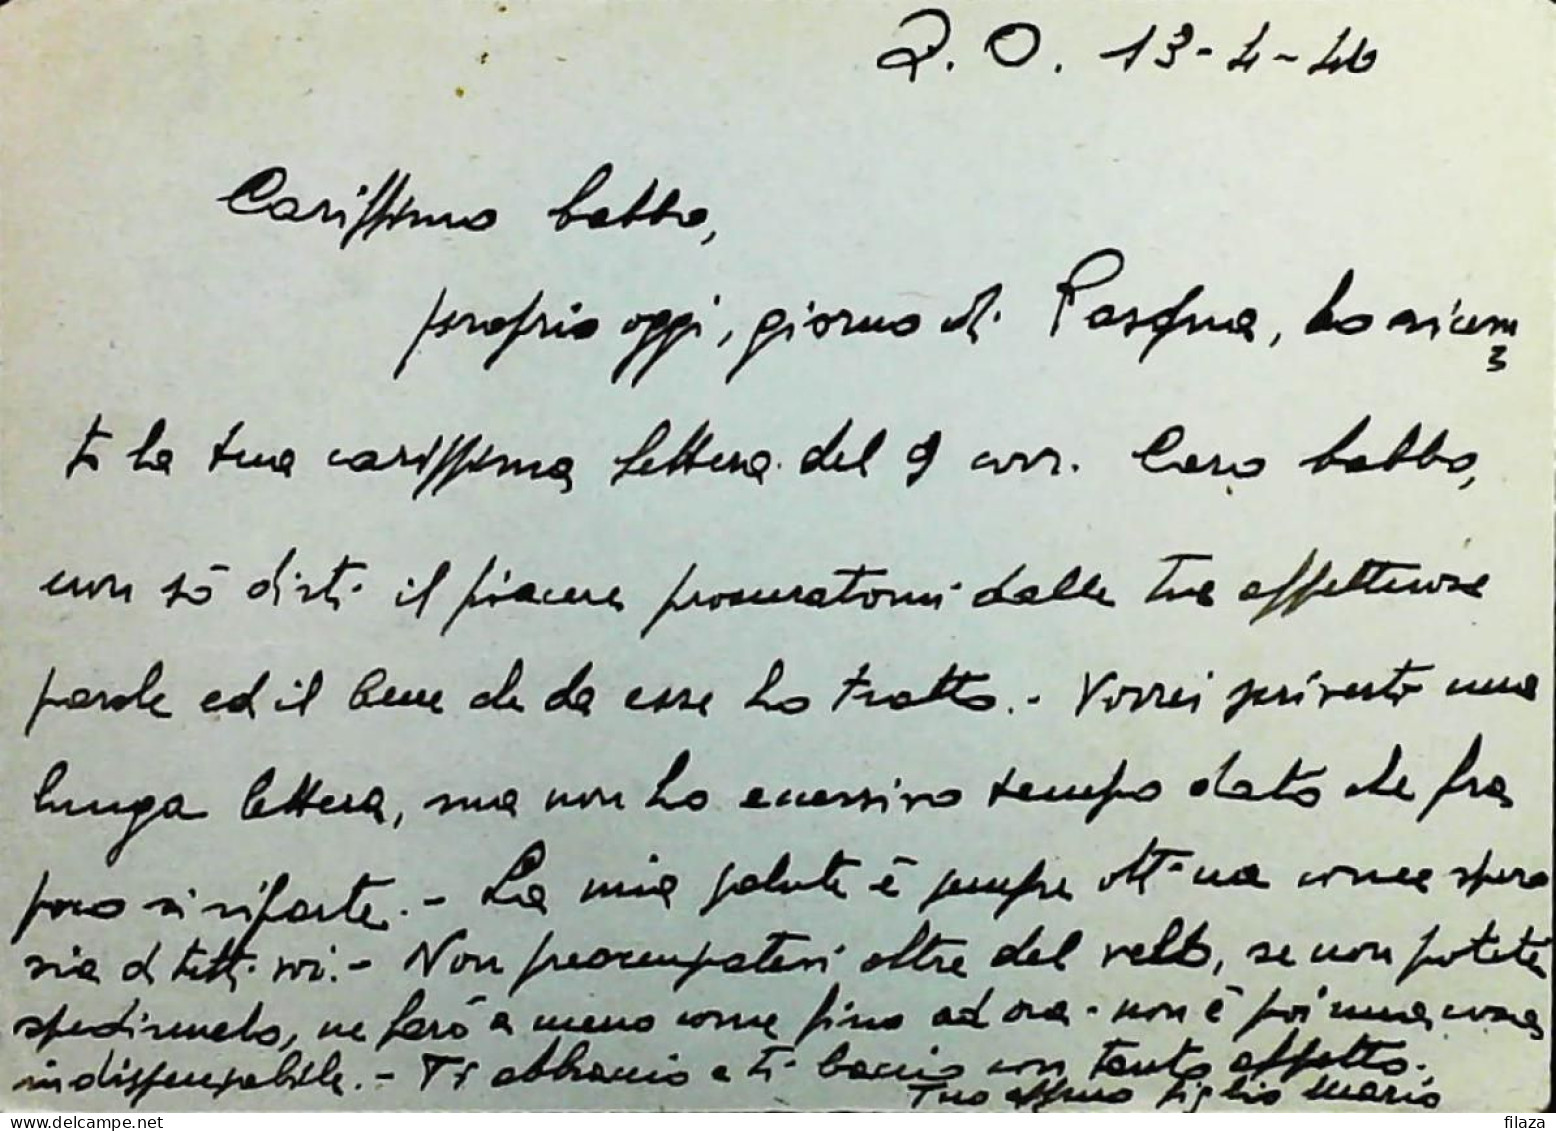 P.O. 13-4-46
Carissimo babbo,
proprio oggi, giorno di Pasqua, ho ricevu
to la tua carissima lettera del 9 corr. Caro babbo,
non sò dirti il piacere procuratomi dalle tue affettuose
parole ed il bene che da esse ho tratto.- Vorrei scriverti una
lunga lettera, ma non ho eccessivo tempo dato che fra
poco si riparte.- La mia salute è sempre ottima come spero
sia di tutti voi.- Non preoccupatevi oltre del, se non potete
spedirmelo, ne farò a meno come fino ad ora - non è poi una cosa
indispensabile.- Ti abbraccio e ti bacio con tanto affetto.
Tuo affmo figlio Mario
filaza